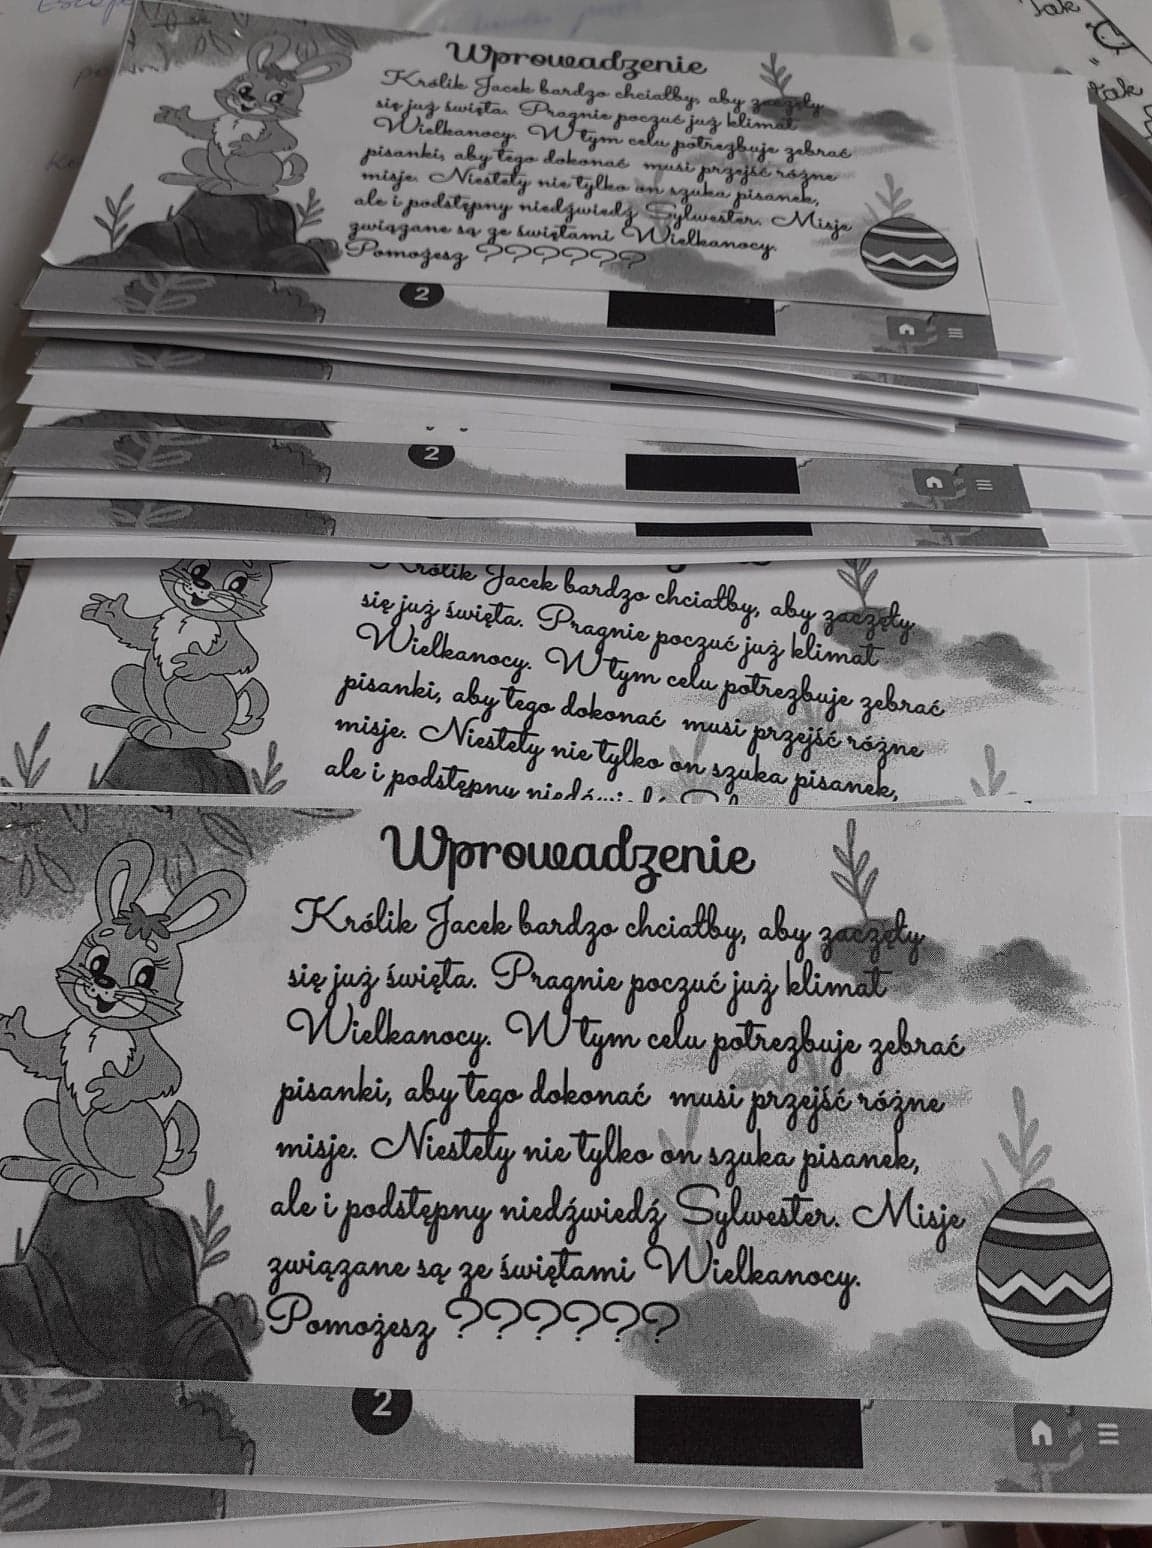 Jak
Jak
Wprowadzenie
Królik Jacek bardzo chciałby, aby zaczęły
się już święta. Pragnie poczuć już klimat
Wielkanocy. W tym celu potrezbuje zebrać
pisanki, aby tego dokonać musi przejść różne
misje. Niestety nie tylko on szuka pisanek,
ale i podstępny niedźwiedź Sylwester. Misje
związane są ze świętami Wielkanocy.
Pomożesz ??????
2
2
Królik Jacek bardzo chciałby, aby zaczęły
się już święta. Pragnie poczuć już klimat
Wielkanocy. W tym celu potrezbuje zebrać
pisanki, aby tego dokonać musi przejść różne
misje. Niestety nie tylko on szuka pisanek,
ale i podstępny niedźwiedź
Wprowadzenie
Królik Jacek bardzo chciałby, aby zaczęły
się już święta. Pragnie poczuć już klimat
Wielkanocy. W tym celu potrezbuje zebrać
pisanki, aby tego dokonać musi przejść różne
misje. Niestety nie tylko on szuka pisanek,
ale i podstępny niedźwiedź Sylwester. Misje
związane są ze świętami Wielkanocy.
Pomożesz ??????
2